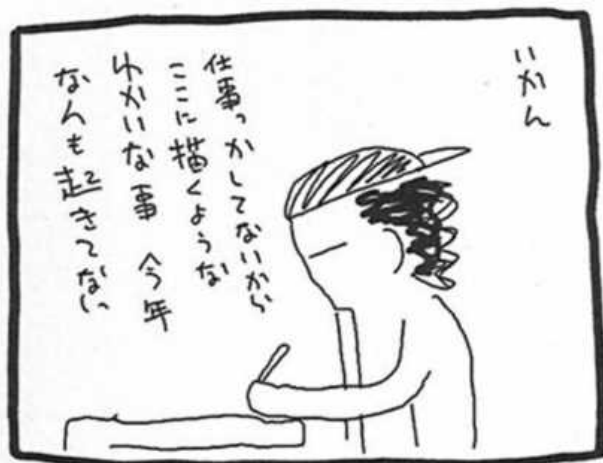 いかん
仕事っかしてないから
ここに描くような
ゆかいな事 今年
なんも起きてない